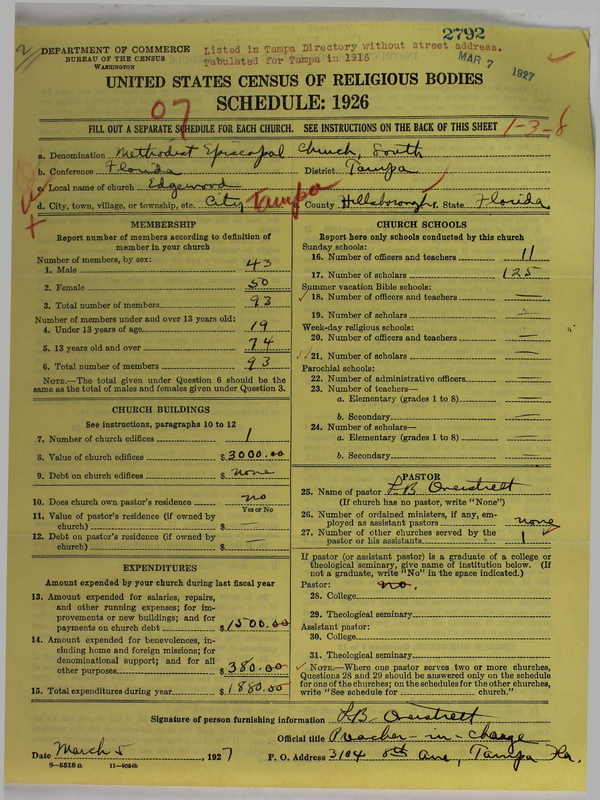 2792
DEPARTMENT OF COMMERCE
BUREAU OF THE CENSUS
WASHINGTON
Listed in Tampa Directory without street address.
Tabulated for Tampa in 1916
MAR 7 1927
UNITED STATES CENSUS OF RELIGIOUS BODIES
SCHEDULE: 1926
07
FILL OUT A SEPARATE SCHEDULE FOR EACH CHURCH. SEE INSTRUCTIONS ON THE BACK OF THIS SHEET
1-3-8
a. Denomination Methodist Episcopal Church, South
b. Conference Florida District Tampa
c. Local name of church Edgewood
d. City, town, village, or township, etc. City Tampa County Hillsborough State Florida
MEMBERSHIP
Report number of members according to definition of
member in your church
Number of members, by sex:
1. Male 43
2. Female 50
3. Total number of members 93
Number of members under and over 13 years old:
4. Under 13 years of age 19
5. 13 years old and over 74
6. Total number of members 93
NOTE.—The total given under Question 6 should be the
same as the total of males and females given under Question 3.
CHURCH BUILDINGS
See instructions, paragraphs 10 to 12
7. Number of church edifices 1
8. Value of church edifices $ 3000.00
9. Debt on church edifices $ none
10. Does church own pastor's residence no
Yes or No
11. Value of pastor's residence (if owned by
church) $ —
12. Debt on pastor's residence (if owned by
church) $ —
EXPENDITURES
Amount expended by your church during last fiscal year
13. Amount expended for salaries, repairs,
and other running expenses; for im-
provements or new buildings; and for
payments on church debt $ 1500.00
14. Amount expended for benevolences, in-
cluding home and foreign missions; for
denominational support; and for all
other purposes $ 380.00
15. Total expenditures during year $ 1880.00
CHURCH SCHOOLS
Report here only schools conducted by this church
Sunday schools:
16. Number of officers and teachers 11
17. Number of scholars 125
Summer vacation Bible schools:
18. Number of officers and teachers —
19. Number of scholars
Week-day religious schools:
20. Number of officers and teachers —
21. Number of scholars —
Parochial schools:
22. Number of administrative officers —
23. Number of teachers—
a. Elementary (grades 1 to 8) —
b. Secondary —
24. Number of scholars—
a. Elementary (grades 1 to 8) —
b. Secondary —
PASTOR
25. Name of pastor L.B. Overstrett
(If church has no pastor, write "None")
26. Number of ordained ministers, if any, em-
ployed as assistant pastors none
27. Number of other churches served by the
pastor or his assistants 1
If pastor (or assistant pastor) is a graduate of a college or
theological seminary, give name of institution below. (If
not a graduate, write "No" in the space indicated.)
Pastor: no.
28. College
29. Theological seminary
Assistant pastor:
30. College
31. Theological seminary
NOTE.—Where one pastor serves two or more churches,
Questions 28 and 29 should be answered only on the schedule
for one of the churches; on the schedules for the other churches,
write "See schedule for church."
Signature of person furnishing information L.B. Overstrett
Official title Preacher-in-charge
Date March 5, 1927 P. O. Address 3104 8th Ave, Tampa Fla.
8—5518a 11—9084b